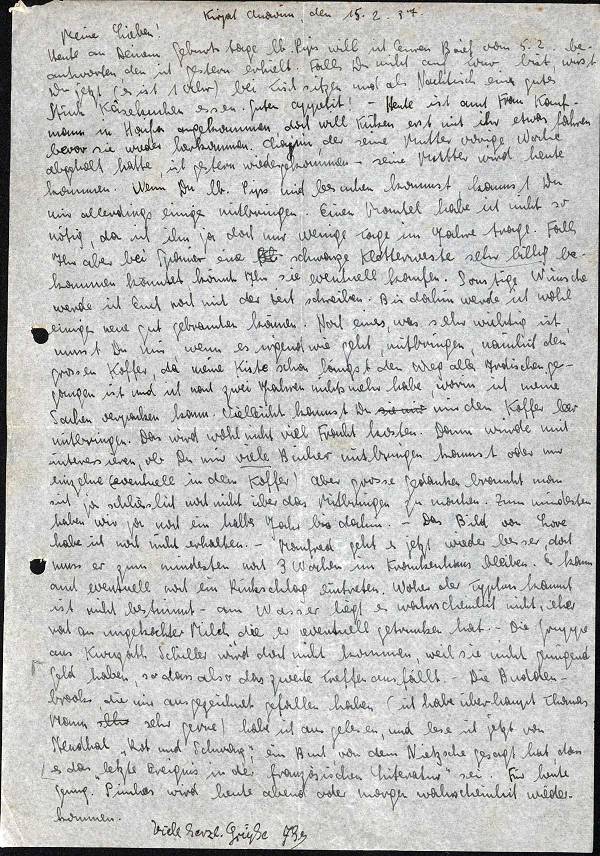 Kirjat Anavim den 15.2.37.
Meine Lieben!
Heute an Deinem Geburtstage lb. Pips will ich Euren Brief vom 5.2. be-
antworten, den ich gestern erhielt. Falls Du nicht auf bist, wirst
Du jetzt (es ist 1 Uhr) bei Tisch sitzen und als Nachtisch ein gutes
Stück Käsekuchen essen. Guten Appetit! - Heute ist auch Frau Kauf-
mann in Haifa angekommen, doch will erst mit ihr etwas fahren
bevor sie wieder herkommen. der seine Mutter vorige Woche
abgeholt hatte, ist gestern wiedergekommen - seine Mutter wird heute
kommen. Wenn Du lb. Pips mich besuchen kommst kannst Du
mir allerdings einiges mitbringen. Einen Mantel habe ich nicht so
nötig, da ich ihn ja doch nur wenige Tage im Jahre trage. Falls
Ihr aber bei eine schwarze Kletterweste sehr billig be-
kommen könntet könnt Ihr sie eventuell kaufen. Sonstige Wünsche
werde ich Euch noch mit der Zeit schreiben. Bis dahin werde ich wohl
einiges neue gut gebrauchen können. Noch eines, was sehr wichtig ist,
musst Du mir, wenn es irgendwie geht, mitbringen, nämlich den
grossen Koffer, da meine Kiste schon längst den Weg alles Irdischen ge-
gangen ist und ich nach zwei Jahren nichts mehr habe, worin ich meine
Sachen verpacken kann. Vielleicht kannst Du mir den Koffer leer
mitbringen. Das wird wohl nicht viel Fracht kosten. Dann würde mich
interessieren, ob Du mir viele Bücher mitbringen kannst oder nur
einzelne (eventuell in dem Koffer) aber grosse Gedanken braucht man
sich ja schliesslich noch nicht über das Mitbringen zu machen. Zum mindesten
haben wir ja noch ein halbes Jahr bis dahin. - Das Bild von Lore
habe ich noch nicht erhalten. - Manfred geht es jetzt wieder besser, doch
muss er zum mindesten noch 3 Wochen im Krankenhaus bleiben. Es kann
auch eventuell noch ein Rückschlag eintreten. Woher der Typhus kommt
ist nicht bestimmt - am Wasser liegt es wahrscheinlich nicht, eher
noch an ungekochter Milch die er eventuell getrunken hat. - Die Gruppe
aus Kwuzath Schiller wird doch nicht kommen, weil sie nicht genügend
Geld haben, so dass also das zweite Treffen ausfällt - Die Budden-
brooks, die mir ausgezeichnet gefallen haben (ich habe überhaupt Thomas
Mann sehr gerne) habe ich ausgelesen, und lese ich jetzt von
Stendhal "Rot und Schwarz", ein Buch von dem Nietzsche gesagt hat, dass
"es das letzte Ereignis in der französischen Literatur" sei. Für heute
genug. Pinhas wird heute abend oder morgen wahrscheinlich wieder-
kommen.
Viele herzl. Grüsse